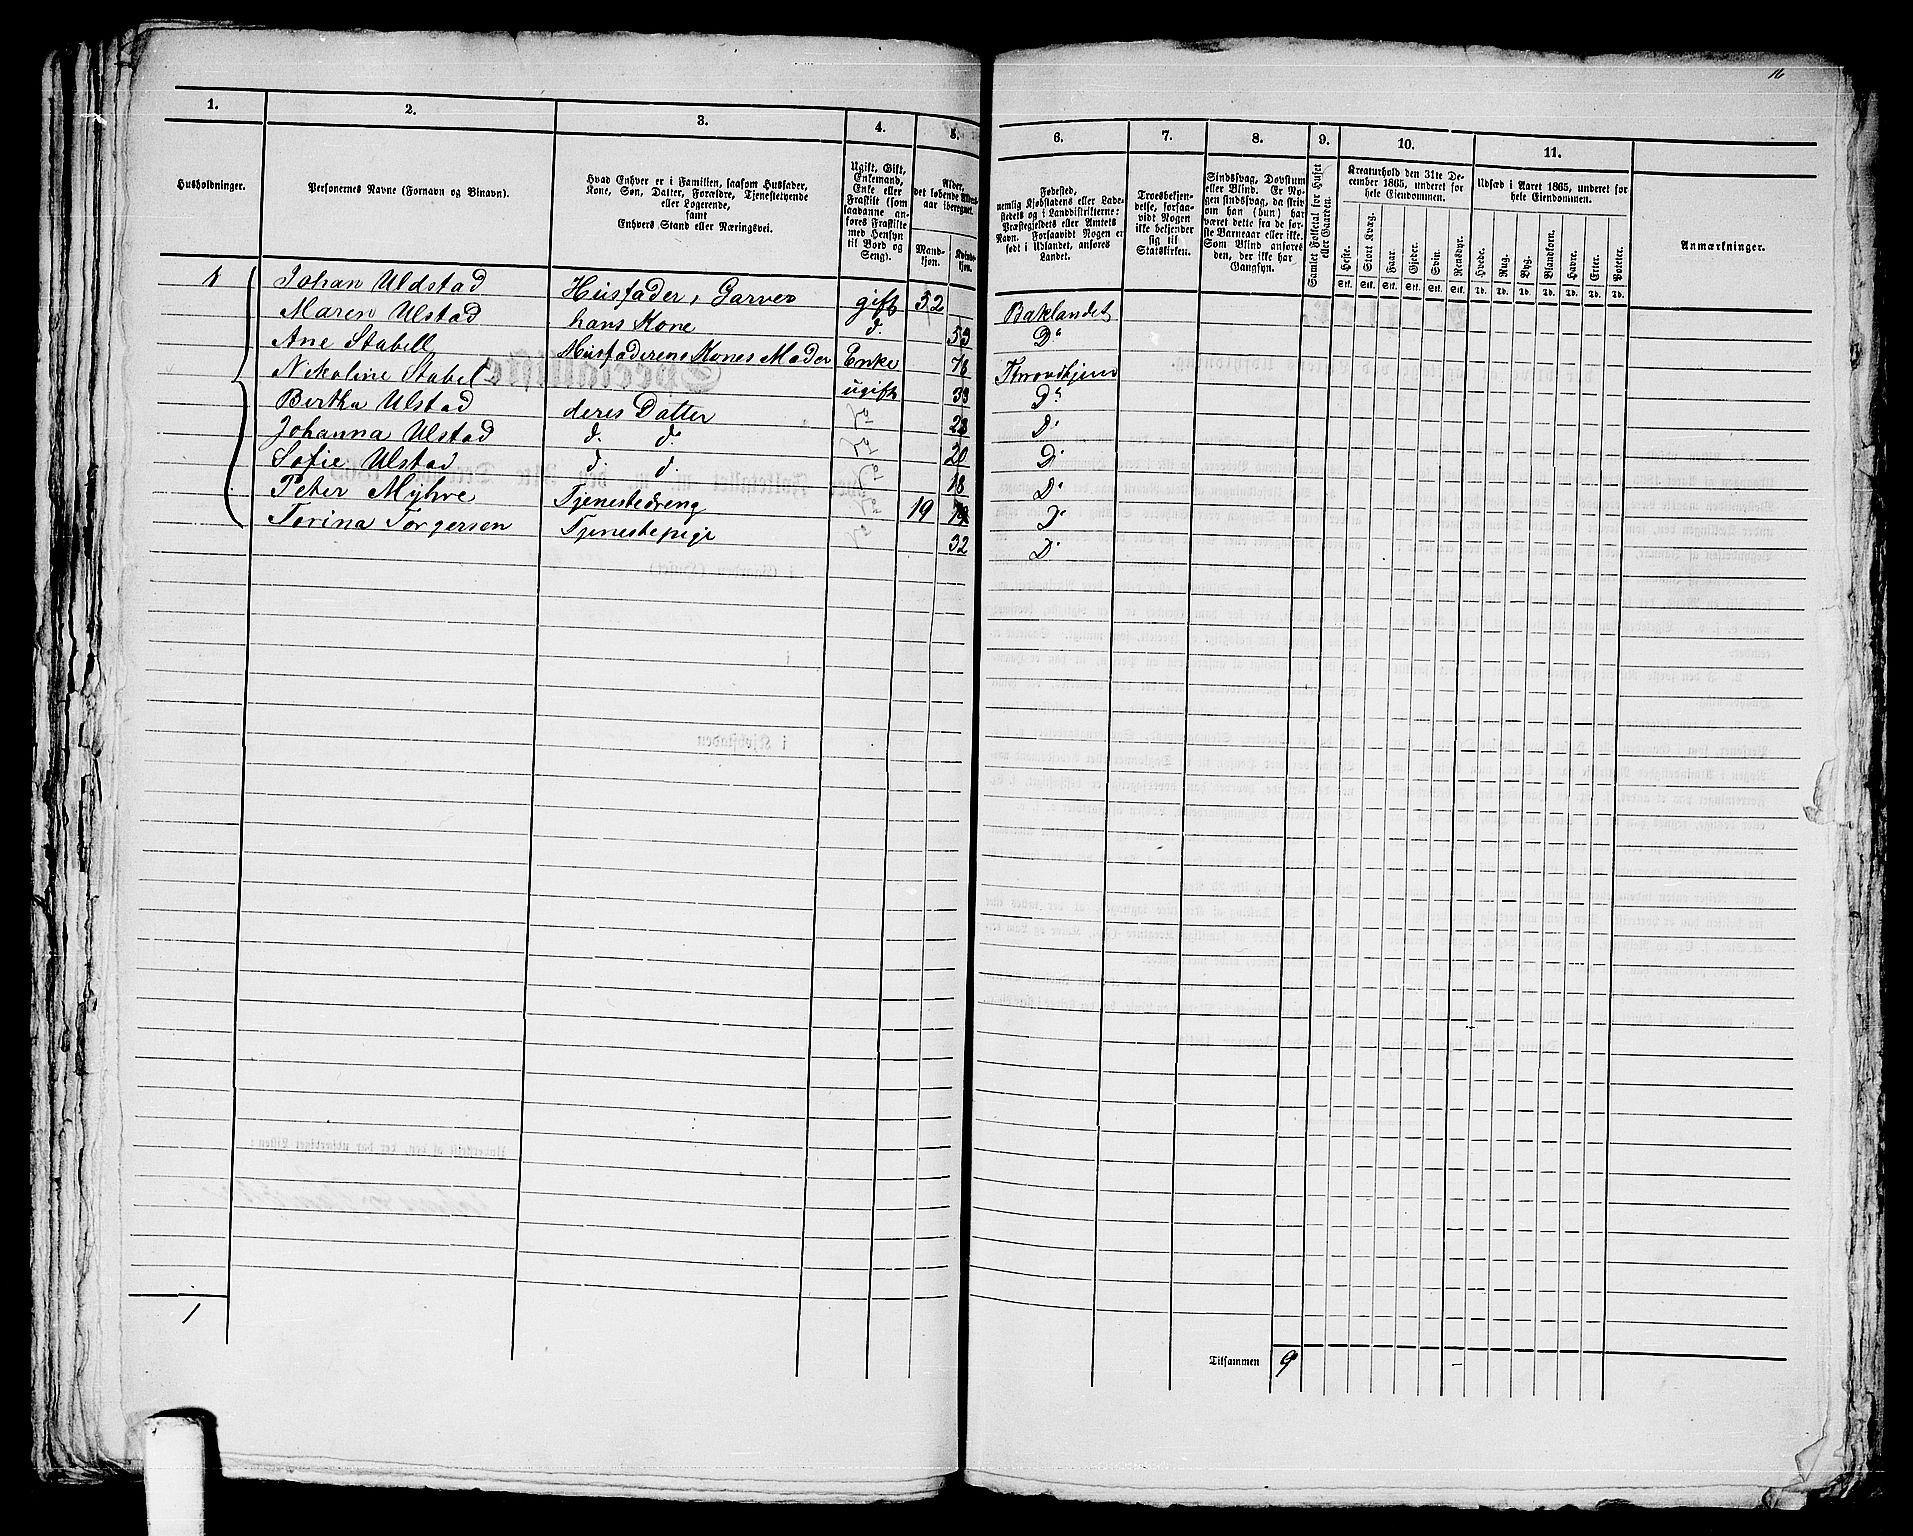 16
1.
2.
3.
4.
5.
6.
7.
8.
9.
10.
11.
Husholdninger.
Personernes Navne (Fornavn og Binavn).
Hvad Enhver er i Familien, saasom Husfader,
Kone, Søn, Datter, Forældre, Tjenestetyende
eller Logerende,
samt
Enhvers Stand eller Næringsvei.
Ugift, Gift,
Enkemand,
Enke eller
Fraskilt (som
saadanne an-
føres Fraskilte
med Hensyn
til Bord og
Seng).
Alder,
det løbende Alders-
aar iberegnet.
Mand-
kjøn.
Kvinde-
kjøn.
Fødested,
nemlig Kjøbstadens eller Lade-
stedets og i Landdistrikterne:
Præstegjeldets eller Amtets
Navn. Forsaavidt Nogen er
født i Udlandet, anføres
Landet.
Troesbekjen-
delse, forsaa-
vidt Nogen
ikke bekjender
sig til
Statskirken.
Sindssvag, Døvstum
eller Blind. Er No-
gen sindssvag, da skriv
om han (hun) har
været dette fra de før-
ste Barneaar eller ikke.
Som Blind anføres
den, der ikke har
Gangsyn.
Samlet Folketal for Huset
eller Gaarden.
Kreaturhold den 31te De-
cember 1865, underet for
hele Eiendommen.
Heste. Stort Kvæg. Faar. Gjeder. Svin. Rensdyr.
Stk. Stk. Stk. Stk. Stk. Stk.
Udsæd i Aaret 1865, underet for
hele Eiendommen.
Hvede. Rug. Byg. Blandkorn. Havre. Erter. Poteter.
Td. Td. Td. Td. Td. Td. Td.
Anmærkninger.
1 Johan Uldstad Husfader, Garver gift 52 Baklandet
Maren Ulstad hans Kone d. 53 Do
Ane Stabell Husfaderens Kones Moder Enke 78 Throndhjem
Nikoline Stabel ugift 33 Do
Bertha Ulstad deres Datter 22 Do
Johanna Ulstad d. d. 20 Do
Sofie Ulstad d. d. 18 Do
Peter Myhre Tjenestedreng 19 Do
Torina Torgersen Tjenestepige 32 Do
1
Tilsammen 9